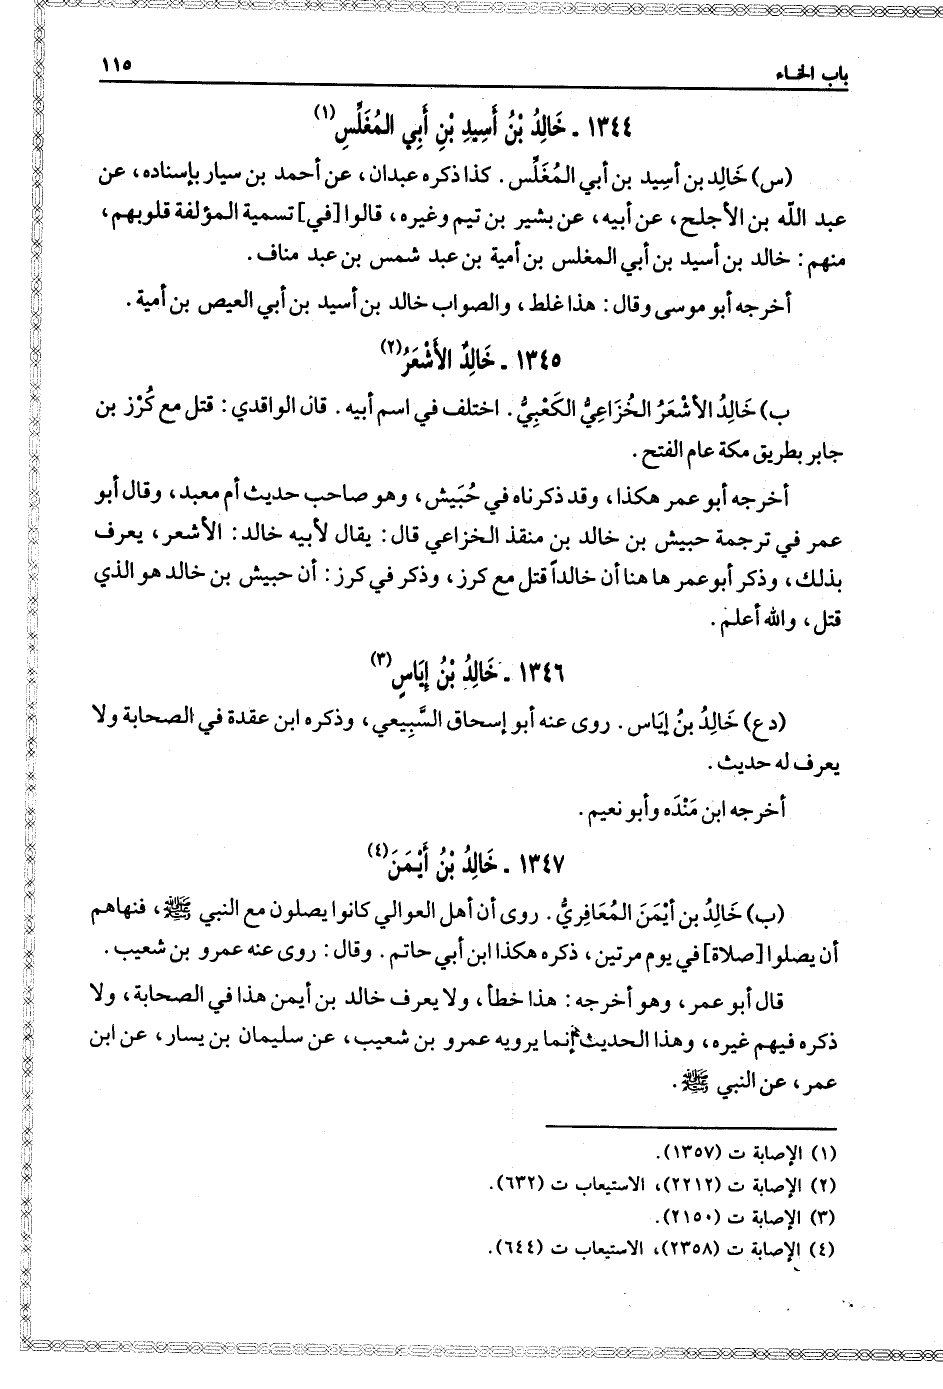 باب الخاء ١١٥
١٣٤٤ - خَالِدُ بْنُ أَسِيدِ بْنِ أَبِي المُغَلِّسِ(١)
(س) خَالِد بن أسِيد بن أبي المُغَلِّس. كذا ذكره عبدان، عن أحمد بن سيار بإسناده، عن
عبد الله بن الأجلح، عن أبيه، عن بشير بن تيم وغيره، قالوا [في] تسمية المؤلفة قلوبهم،
منهم: خالد بن أسيد بن أبي المغلس بن أمية بن عبد شمس بن عبد مناف.
أخرجه أبو موسى وقال: هذا غلط، والصواب خالد بن أسيد بن أبي العيص بن أمية.
١٣٤٥ - خَالِدٌ الأَشْعَرُ(٢)
ب) خَالِدُ الأشْعَرُ الخُزَاعِيُّ الكَعْبِيُّ. اختلف في اسم أبيه. قال الواقدي: قتل مع كُرْز بن
جابر بطريق مكة عام الفتح.
أخرجه أبو عمر هكذا، وقد ذكرناه في حُبَيش، وهو صاحب حديث أم معبد، وقال أبو
عمر في ترجمة حبيش بن خالد بن منقذ الخزاعي قال: يقال لأبيه خالد: الأشعر، يعرف
بذلك، وذكر أبو عمر ها هنا أن خالداً قتل مع كرز، وذكر في كرز: أن حبيش بن خالد هو الذي
قتل، والله أعلم.
١٣٤٦ - خَالِدُ بْنُ إِيَاسٍ(٣)
(دع) خَالِدُ بنُ إيَاس. روى عنه أبو إسحاق السَّبِيعي، وذكره ابن عقدة في الصحابة ولا
يعرف له حديث.
أخرجه ابن مَنْدَه وأبو نعيم.
١٣٤٧ - خَالِدُ بْنُ أَيْمَنَ(٤)
(ب) خَالِدُ بن أيْمَنَ المُعَافِرِيُّ. روى أن أهل العوالي كانوا يصلون مع النبي ﷺ، فنهاهم
أن يصلوا [صلاة] في يوم مرتين، ذكره هكذا ابن أبي حاتم. وقال: روى عنه عمرو بن شعيب.
قال أبو عمر، وهو أخرجه: هذا خطأ، ولا يعرف خالد بن أيمن هذا في الصحابة، ولا
ذكره فيهم غيره، وهذا الحديث إنما يرويه عمرو بن شعيب، عن سليمان بن يسار، عن ابن
عمر، عن النبي ﷺ.
(١) الإصابة ت (١٣٥٧).
(٢) الإصابة ت (٢٢١٢)، الاستيعاب ت (٦٣٢).
(٣) الإصابة ت (٢١٥٠).
(٤) الإصابة ت (٢٣٥٨)، الاستيعاب ت (٦٤٤).